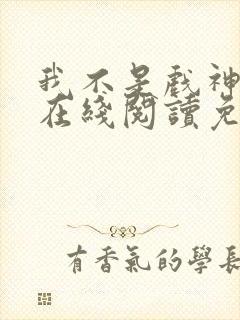 我不是戲神
在綫閱讀免
有香氣的學長